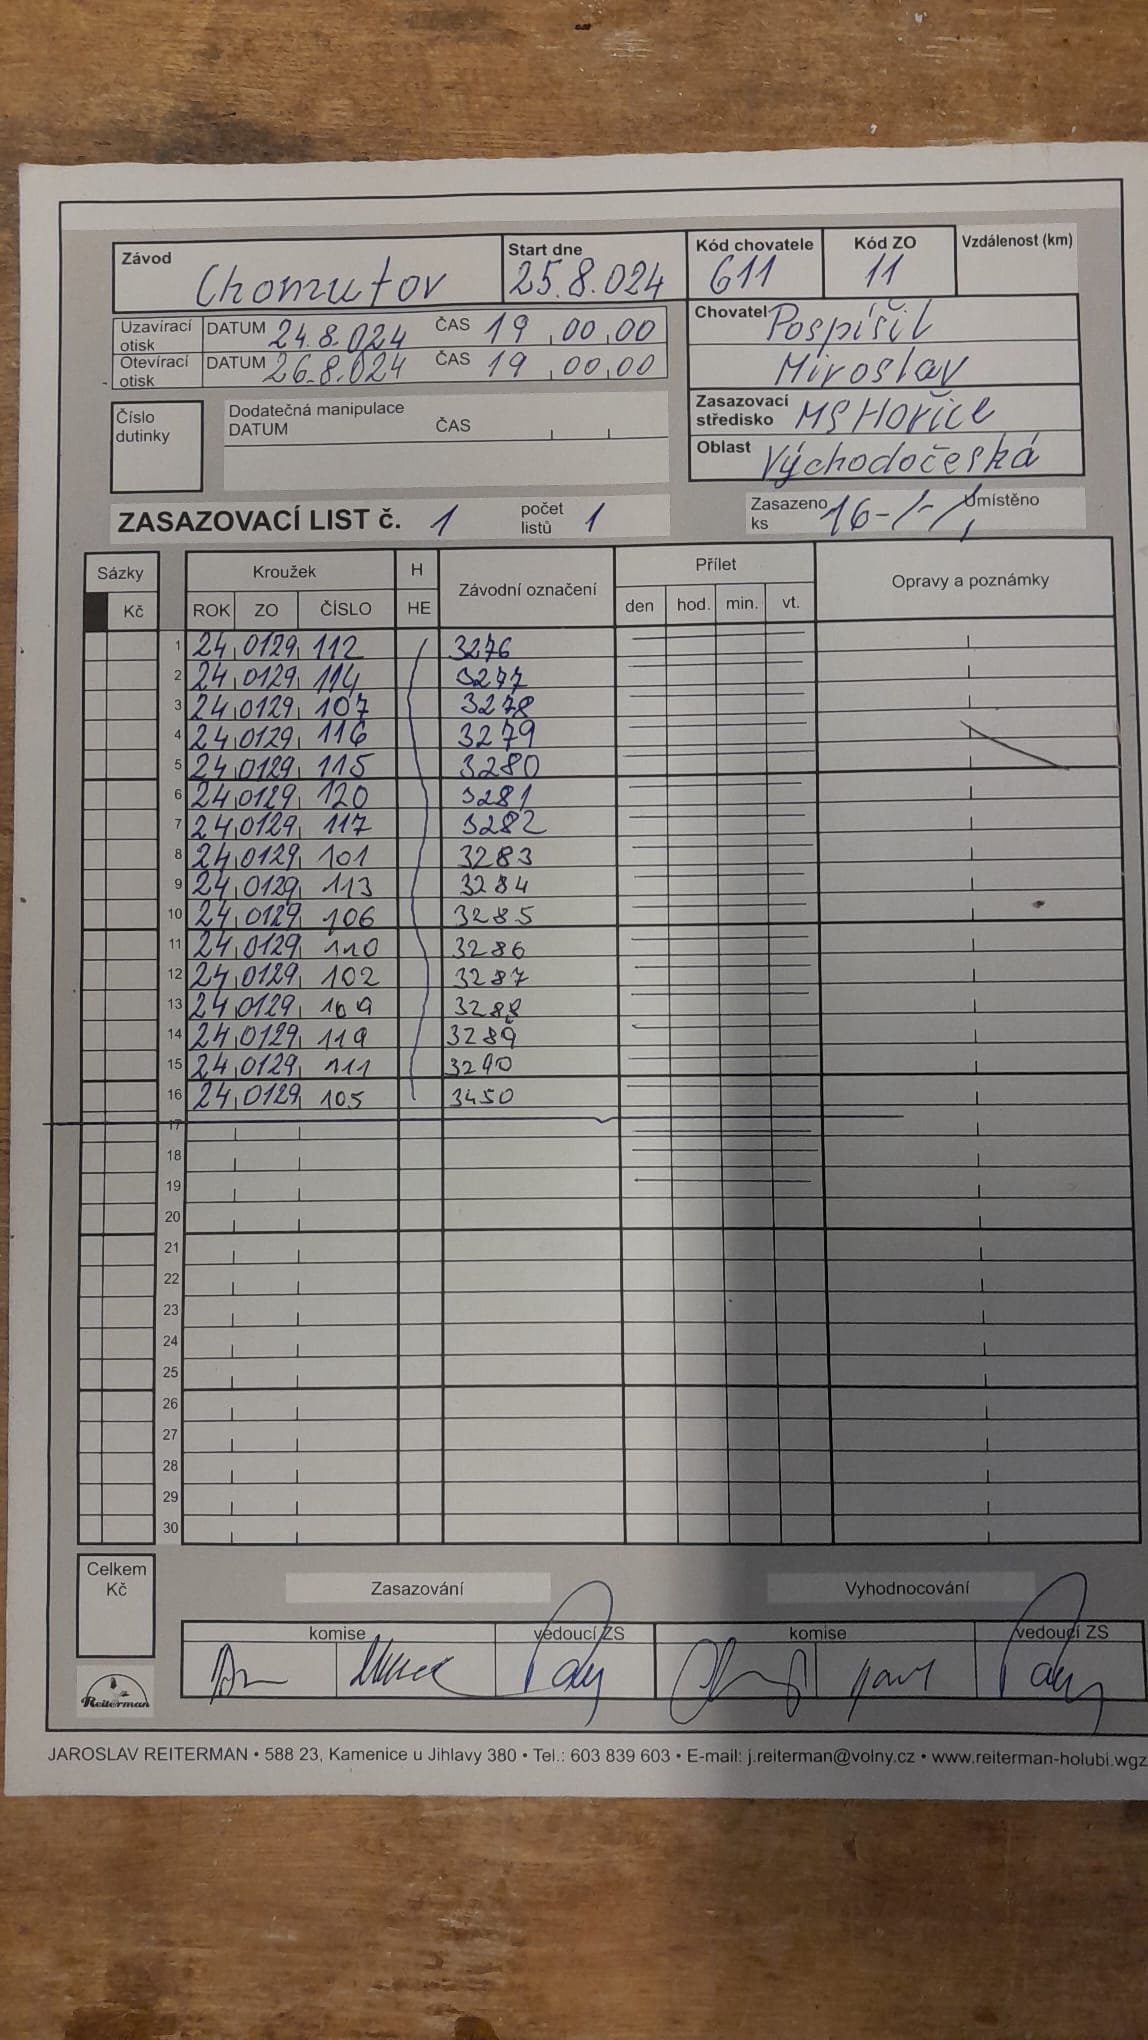 Závod Chomutov Start dne 25.8.024 Kód chovatele 611 Kód ZO 11 Vzdálenost (km)
Uzavírací otisk DATUM 24.8.024 ČAS 19,00,00
Otevírací otisk DATUM 26.8.024 ČAS 19,00,00
Chovatel Pospíšil
Miroslav
Číslo dutinky
Dodatečná manipulace
DATUM ČAS
Zasazovací středisko MS Hořice
Oblast Východočeská
ZASAZOVACÍ LIST č. 1 počet listů 1 Zasazeno ks 16-/-/ Umístěno
Sázky Kroužek H Závodní označení Přílet Opravy a poznámky
Kč ROK ZO ČÍSLO HE den hod. min. vt.
1 24 0129 112 3276
2 24 0129 114 3277
3 24 0129 107 3278
4 24 0129 116 3279
5 24 0129 115 3280
6 24 0129 120 3281
7 24 0129 117 3282
8 24 0129 101 3283
9 24 0129 113 3284
10 24 0129 106 3285
11 24 0129 110 3286
12 24 0129 102 3287
13 24 0129 109 3288
14 24 0129 119 3289
15 24 0129 111 3290
16 24 0129 105 3450
17
18
19
20
21
22
23
24
25
26
27
28
29
30
Celkem Kč
Zasazování Vyhodnocování
komise vedoucí ZS komise vedoucí ZS
Reiterman
JAROSLAV REITERMAN • 588 23, Kamenice u Jihlavy 380 • Tel.: 603 839 603 • E-mail: j.reiterman@volny.cz • www.reiterman-holubi.wgz